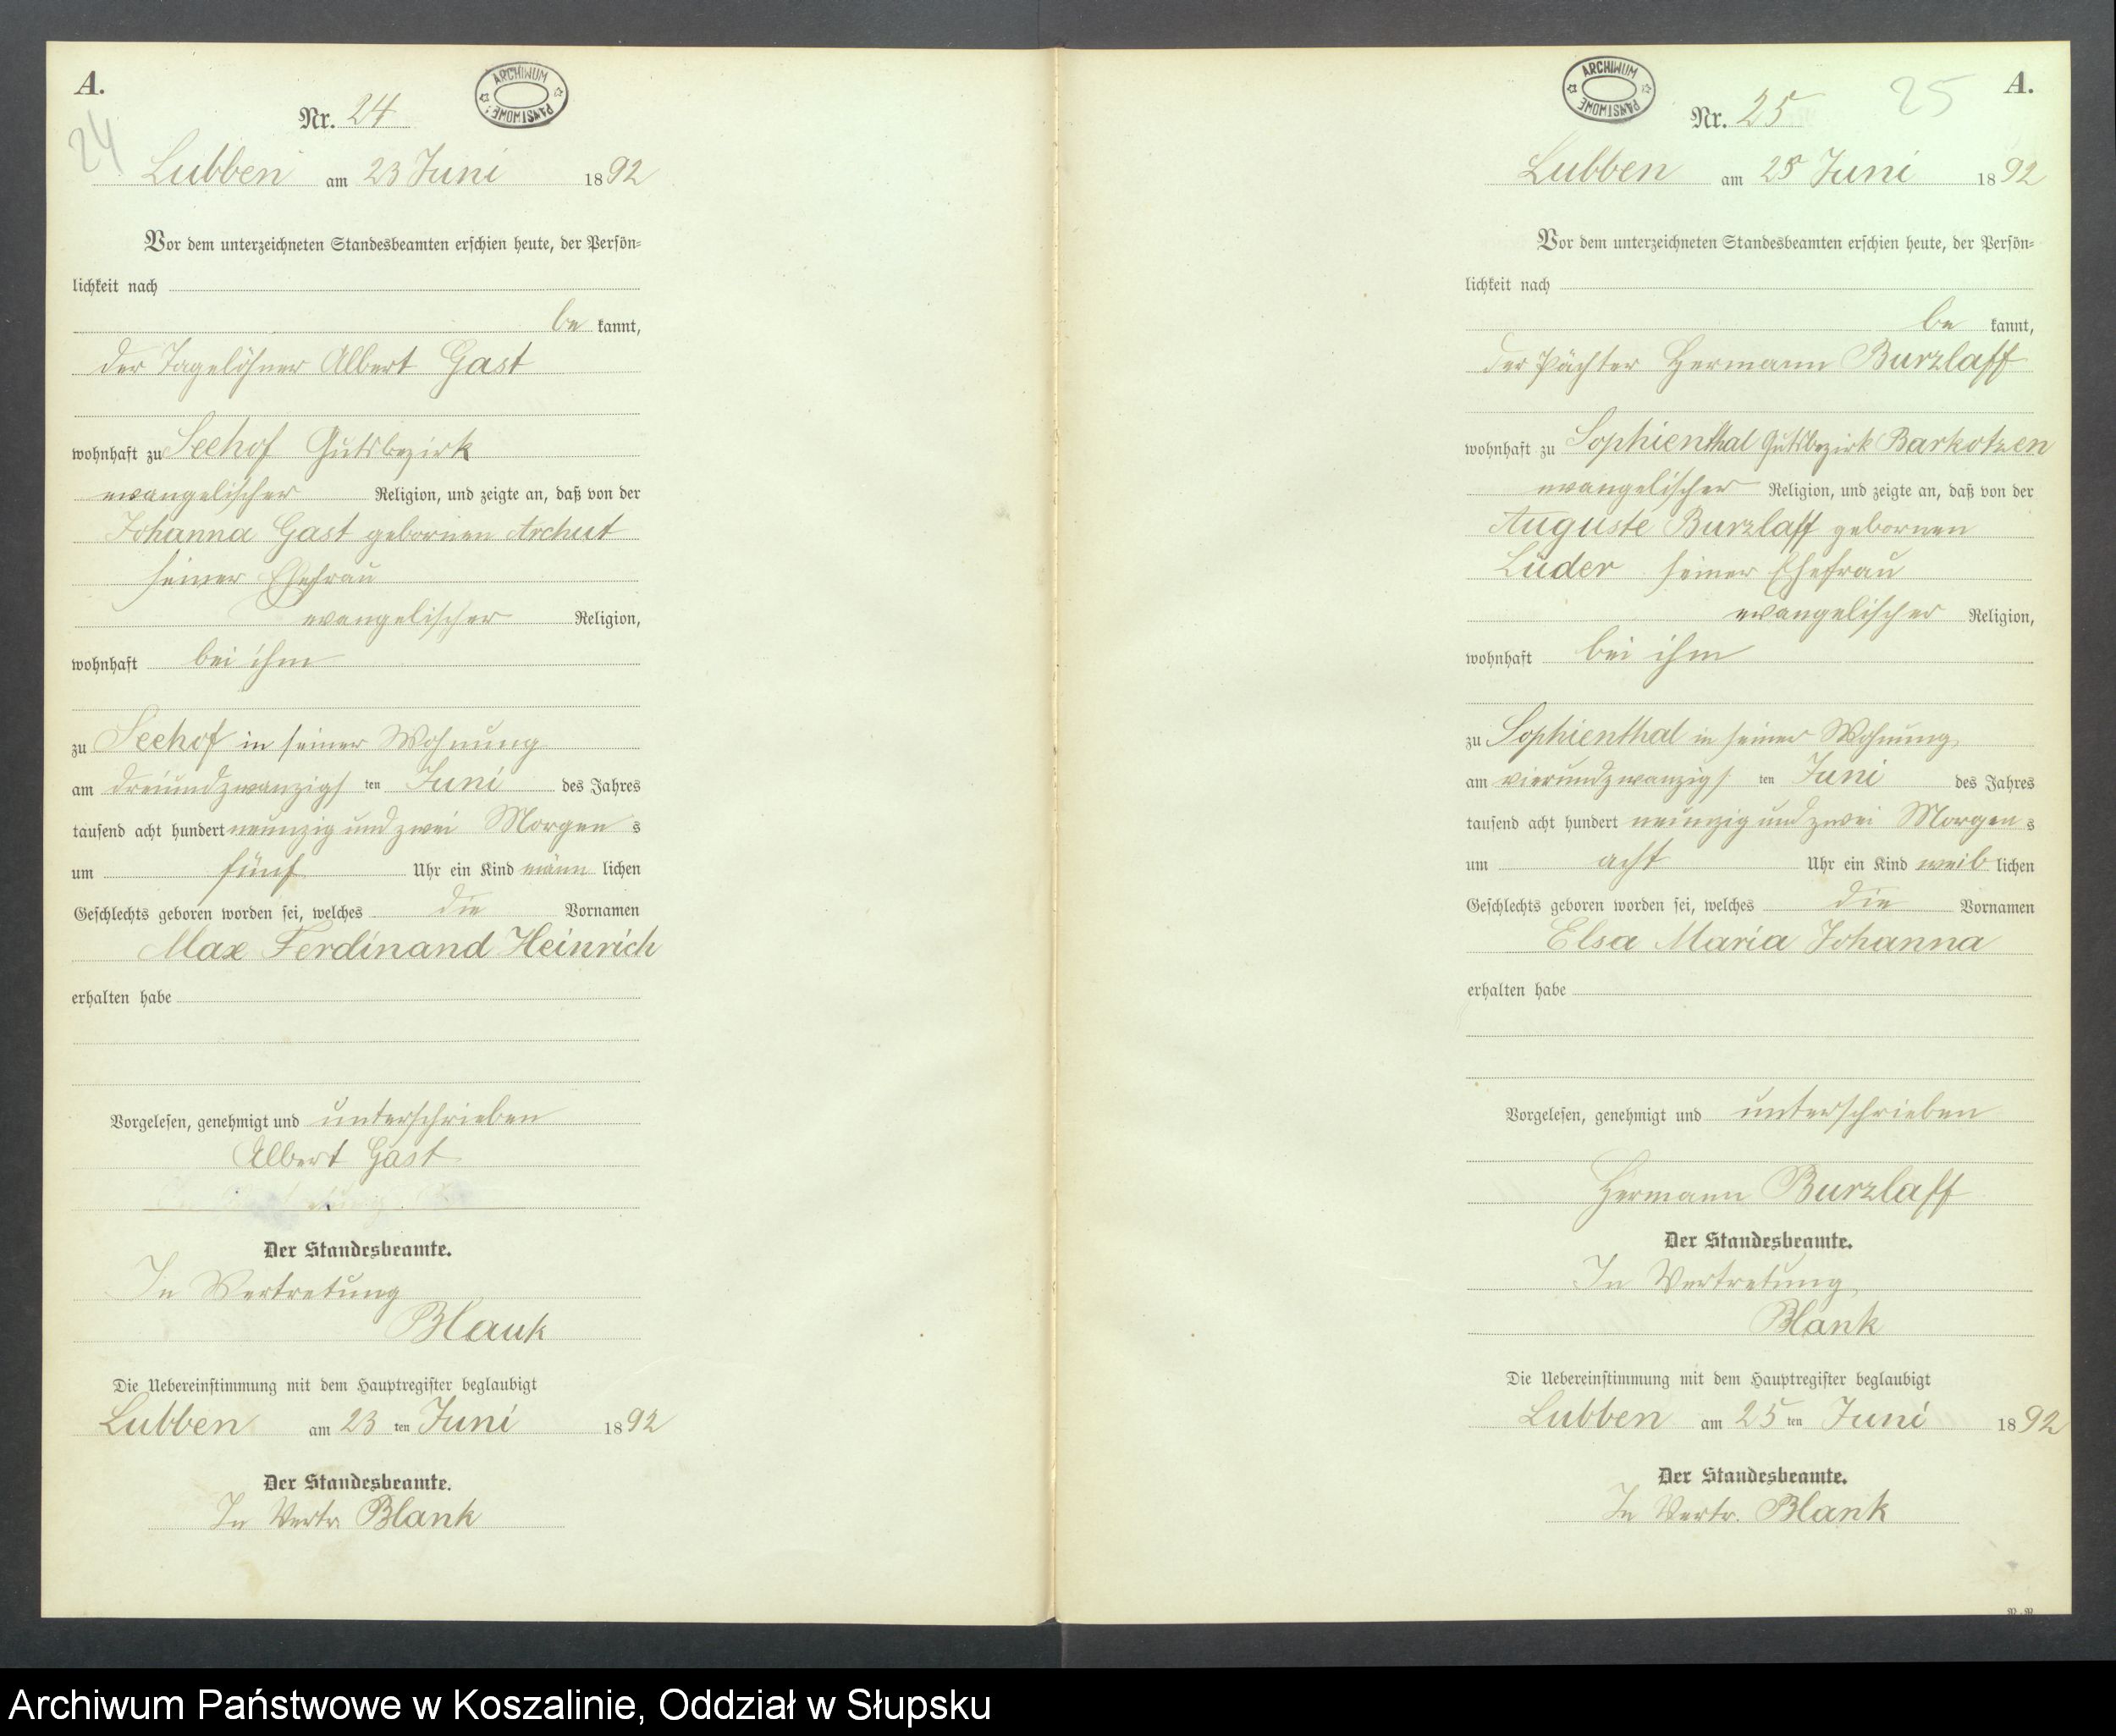 A.
24
ARCHIWUM PAŃSTWOWE
Nr. 24
Lubben am 23 Juni 1892
Vor dem unterzeichneten Standesbeamten erschien heute, der Persön=
lichkeit nach
be kannt,
der Tagelöhner Albert Gast
wohnhaft zu Seehof Gutsbezirk
evangelischer Religion, und zeigte an, daß von der
Johanna Gast gebornen Archut
seiner Ehefrau
evangelischer Religion,
wohnhaft bei ihm
zu Seehof in seiner Wohnung
am dreiundzwanzigs ten Juni des Jahres
tausend acht hundert neunzig und zwei Morgen s
um fünf Uhr ein Kind männ lichen
Geschlechts geboren worden sei, welches die Vornamen
Max Ferdinand Heinrich
erhalten habe
Vorgelesen, genehmigt und unterschrieben
Albert Gast
Der Standesbeamte.
In Vertretung
Blank
Die Uebereinstimmung mit dem Hauptregister beglaubigt
Lubben am 23 ten Juni 1892
Der Standesbeamte.
In Vertr. Blank
ARCHIWUM PAŃSTWOWE
25
A.
Nr. 25
Lubben am 25 Juni 1892
Vor dem unterzeichneten Standesbeamten erschien heute, der Persön=
lichkeit nach
be kannt,
der Pächter Hermann Burzlaff
wohnhaft zu Sophienthal Gutsbezirk Barkotzen
evangelischer Religion, und zeigte an, daß von der
Auguste Burzlaff gebornen
Lüder seiner Ehefrau
evangelischer Religion,
wohnhaft bei ihm
zu Sophienthal in seiner Wohnung
am vierundzwanzigs ten Juni des Jahres
tausend acht hundert neunzig und zwei Morgen s
um acht Uhr ein Kind weib lichen
Geschlechts geboren worden sei, welches die Vornamen
Elsa Maria Johanna
erhalten habe
Vorgelesen, genehmigt und unterschrieben
Hermann Burzlaff
Der Standesbeamte.
In Vertretung
Blank
Die Uebereinstimmung mit dem Hauptregister beglaubigt
Lubben am 25 ten Juni 1892
Der Standesbeamte.
In Vertr. Blank
Archiwum Państwowe w Koszalinie, Oddział w Słupsku